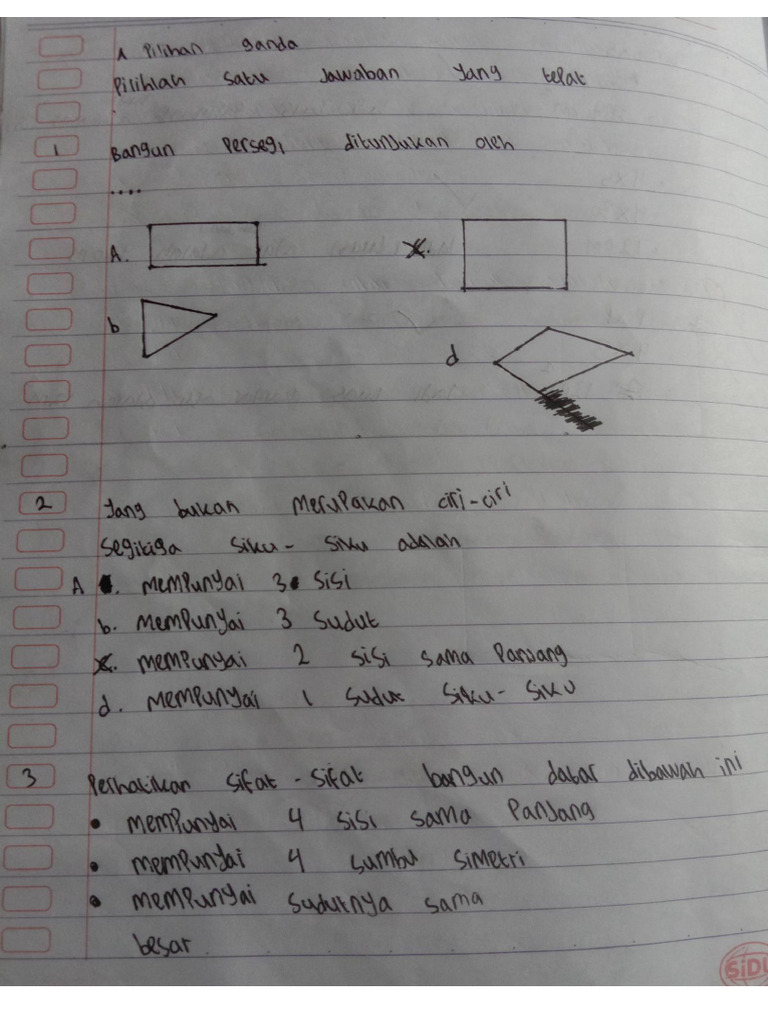 A Pilihan ganda
Pilihlah satu Jawaban yang tepat
1 Bangun Persegi ditunjukan oleh
....
A.
c.
b
d
2 Yang bukan merupakan ciri-ciri
segitiga siku-siku adalah
A. mempunyai 3 sisi
b. mempunyai 3 sudut
c. mempunyai 2 sisi sama Panjang
d. mempunyai 1 sudut siku-siku
3 Perhatikan sifat-sifat bangun datar dibawah ini
• mempunyai 4 sisi sama Panjang
• mempunyai 4 sumbu simetri
• mempunyai sudutnya sama
besar
SiDU